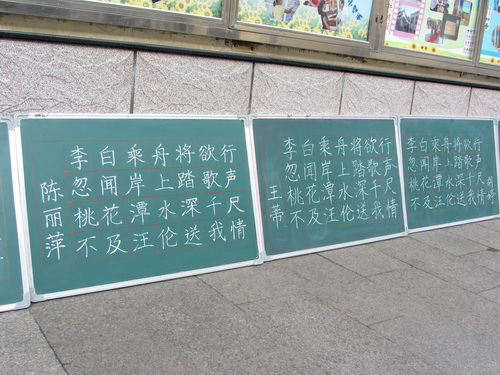 李白乘舟将欲行
忽闻岸上踏歌声
桃花潭水深千尺
不及汪伦送我情
陈丽萍
李白乘舟将欲行
忽闻岸上踏歌声
桃花潭水深千尺
不及汪伦送我情
王蒂
李白乘舟将欲行
忽闻岸上踏歌声
桃花潭水深千尺
不及汪伦送我情